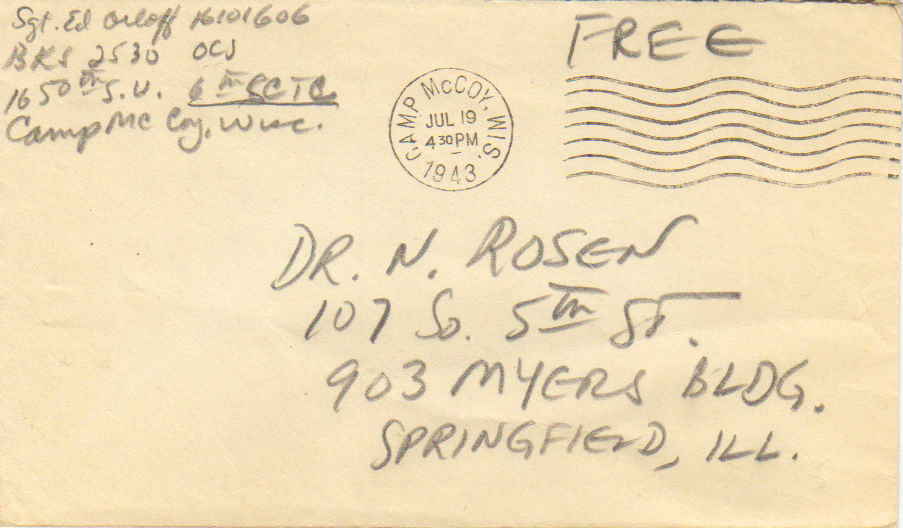 Sgt. Ed Orloff 16101606
BKS 2530 OCS
1650th S.U. 6th SCTC
Camp Mc Coy, Wisc.
FREE
CAMP McCOY, WIS.
JUL 19
4 30 PM
1943
DR. N. ROSEN
107 So. 5th St.
903 MYERS BLDG.
SPRINGFIELD, ILL.